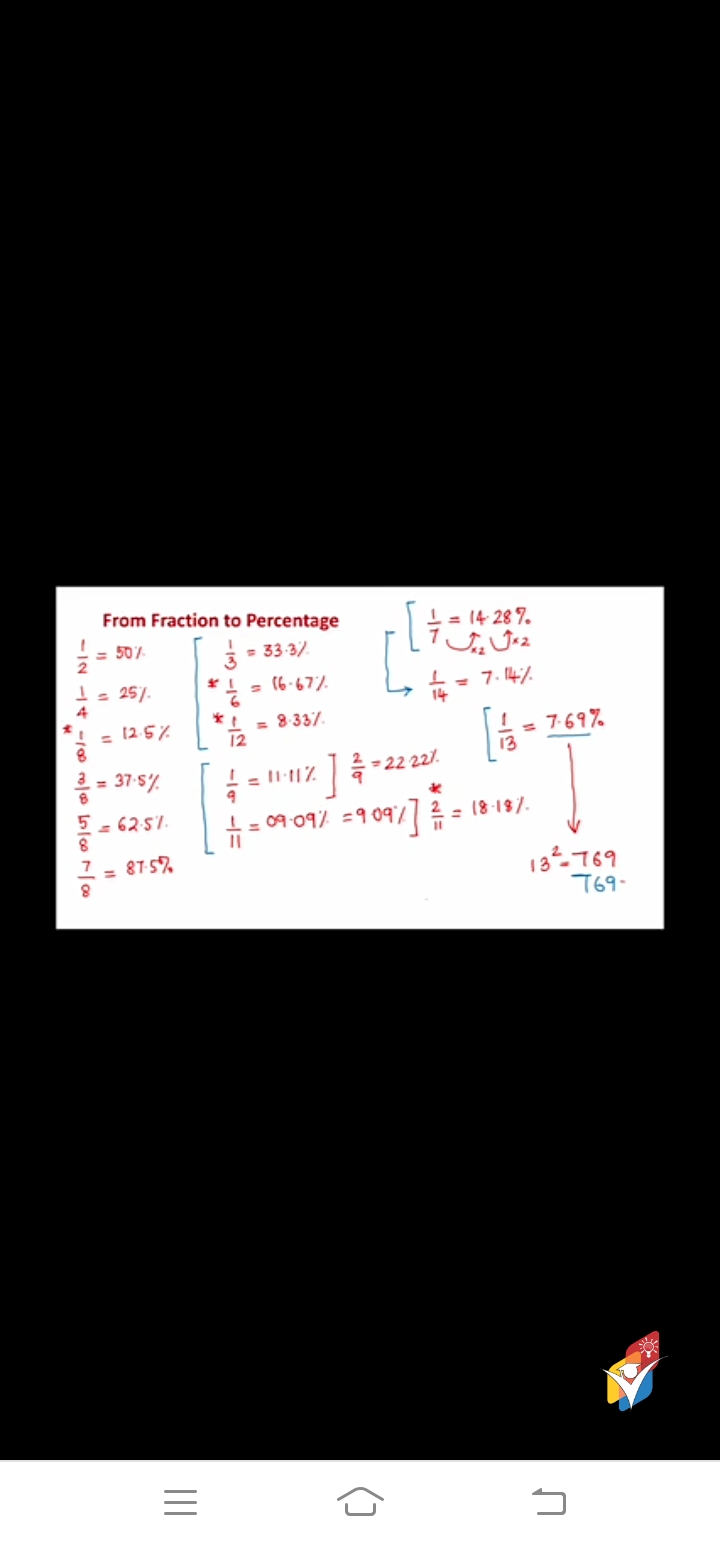 From Fraction to Percentage
1/2 = 50%
1/4 = 25%.
* 1/8 = 12.5%
3/8 = 37.5%
5/8 = 62.5%.
7/8 = 87.5%
[ 1/3 = 33.3%
* 1/6 = 16.67%
* 1/12 = 8.33%.
[ 1/9 = 11.11% ] 2/9 = 22.22%.
1/11 = 09.09% = 9.09% ] * 2/11 = 18.18%.
[ 1/7 = 14.28%
×2 ×2
1/14 = 7.14%
[ 1/13 = 7.69%
13² = 769
769-